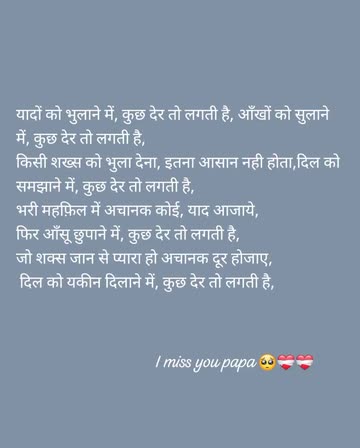 यादों को भुलाने में, कुछ देर तो लगती है, आँखों को सुलाने
में, कुछ देर तो लगती है,
किसी शख्स को भुला देना, इतना आसान नही होता,दिल को
समझाने में, कुछ देर तो लगती है,
भरी महफ़िल में अचानक कोई, याद आजाये,
फिर आँसू छुपाने में, कुछ देर तो लगती है,
जो शक्स जान से प्यारा हो अचानक दूर होजाए,
दिल को यकीन दिलाने में, कुछ देर तो लगती है,
I miss you papa 🥺❤️‍🩹❤️‍🩹